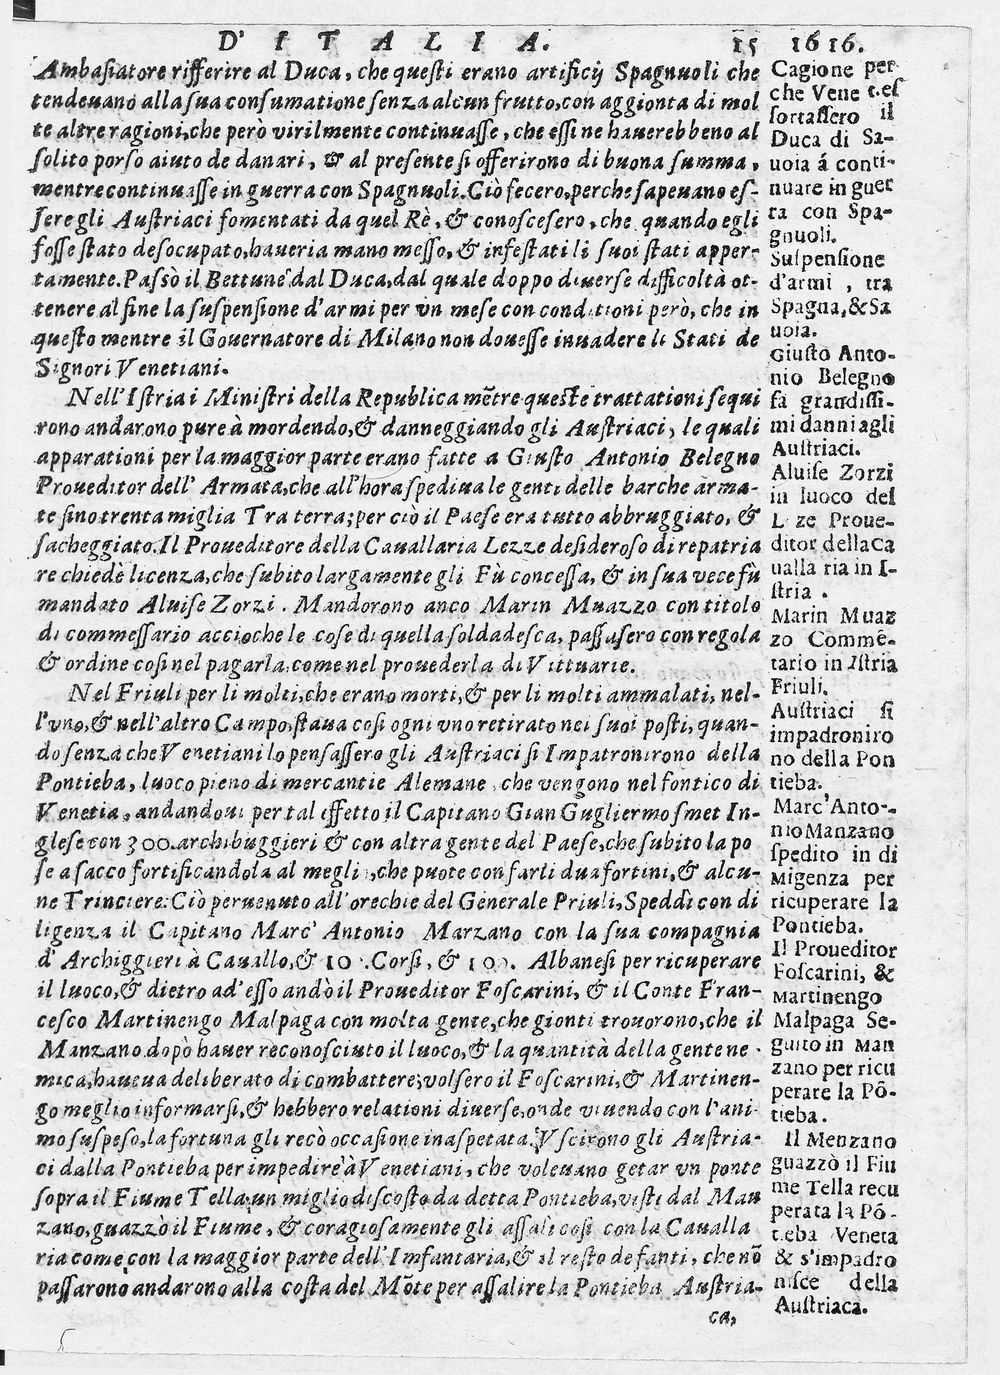 D' I T A L I A. 15 1616.
Ambasiatore rifferire al Duca, che questi erano artificij Spagnuoli che
tendeuano alla sua consumatione senza alcun frutto, con aggionta di mol
te altre ragioni, che però virilmente continuasse, che essi ne hauerebbeno al
solito porso aiuto de danari, & al presente si offerirono di buona summa,
mentre continuasse in guerra con Spagnuoli. Ciò fecero, perche sapeuano es-
sere gli Austriaci fomentati da quel Rè, & conoscesero, che quando egli
fosse stato desocupato, haueria mano messo, & infestati li suoi stati apper-
tamente. Passò il Bettune dal Duca, dal quale doppo diuerse difficoltà ot-
tenere al fine la suspensione d'armi per vn mese con conditioni però, che in
questo mentre il Gouernatore di Milano non douesse inuadere li Stati de
Signori Venetiani.
Nell'Istria i Ministri della Republica mẽtre queste trattationi sequi
rono andarono pure à mordendo, & danneggiando gli Austriaci, le quali
apparationi per la maggior parte erano fatte a Giusto Antonio Belegno
Proueditor dell' Armata, che all'hora spediua le genti delle barche arma-
te sino trenta miglia Tra terra; per ciò il Paese era tutto abbruggiato, &
sacheggiato. Il Proueditore della Cauallaria Lezze desideroso di repatria
re chiedè licenza, che subito largamente gli Fù concessa, & in sua vece fù
mandato Aluise Zorzi. Mandorono anco Marin Muazzo con titolo
di commessario accioche le cose di quella soldadesca, passasero con regola
& ordine cosi nel pagarla, come nel prouederla di Vittuarie.
Nel Friuli per li molti, che erano morti, & per li molti ammalati, nel-
l'vno, & nell'altro Campo, staua cosi ogni vno retirato nei suoi posti, quan-
do senza che Venetiani lo pensassero gli Austriaci si Impatronirono della
Pontieba, luoco pieno di mercantie Alemane, che vengono nel fontico di
Venetia, andandoui per tal effetto il Capitano Gian Gugliermo smet In-
glese con 300. archibuggieri & con altra gente del Paese, che subito la po
se a sacco fortificandola al megli, che puote con farli dua fortini, & alcu-
ne Trinciere: Ciò peruenuto all' orechie del Generale Priuli, Speddì con di
ligenza il Capitano Marc' Antonio Marzano con la sua compagnia
d' Archiggieri à Cauallo, & 10 . Corsi, & 100. Albanesi per ricuperare
il luoco, & dietro ad' esso andò il Proueditor Foscarini, & il Conte Fran-
cesco Martinengo Malpaga con molta gente, che gionti trouorono, che il
Manzano dopò hauer reconosciuto il luoco, & la quantità della gente ne-
mica, haueua deliberato di combattere; volsero il Foscarini, & Martinen-
go meglio informarsi, & hebbero relationi diuerse, onde viuendo con l'ani-
mo suspeso, la fortuna gli recò occasione inaspetata. Vscirono gli Austria-
ci dalla Pontieba per impedire à Venetiani, che voleuano getar vn ponte
sopra il Fiume Tella; un miglio discosto da detta Pontieba, visti dal Man
zano, guazzò il Fiume, & coragiosamente gli assalì cosi con la Caualla
ria come con la maggior parte dell' Imfantaria, & il resto de fanti, che nõ
passarono andarono alla costa del Mõte per assalire la Pontieba Austria-
ca,
Cagione per
che Veneti
sortassero il
Duca di Sa-
uoia á conti-
nuare in guer
ra con Spa-
gnuoli.
Suspensione
d'armi, tra
Spagna, & Sa
uoia.
Giusto Anto-
nio Belegno
fà grandissi-
mi danni agli
Austriaci.
Aluise Zorzi
in luoco del
L ze Proue-
ditor della Ca
ualla ria in I-
stria.
Marin Muaz
zo Commẽ-
tario in Istria
Friuli.
Austriaci si
impadroniro
no della Pon
tieba.
Marc' Anto-
nio Manzano
spedito in di
Migenza per
ricuperare la
Pontieba.
Il Proueditor
Foscarini, &
Martinengo
Malpaga Se-
guito in Man
zano per ricu
perate la Põ-
tieba.
Il Menzano
guazzò il Fiu
me Tella recu
perata la Põ-
tieba Veneta
& s'impadro
nisce della
Austriaca.